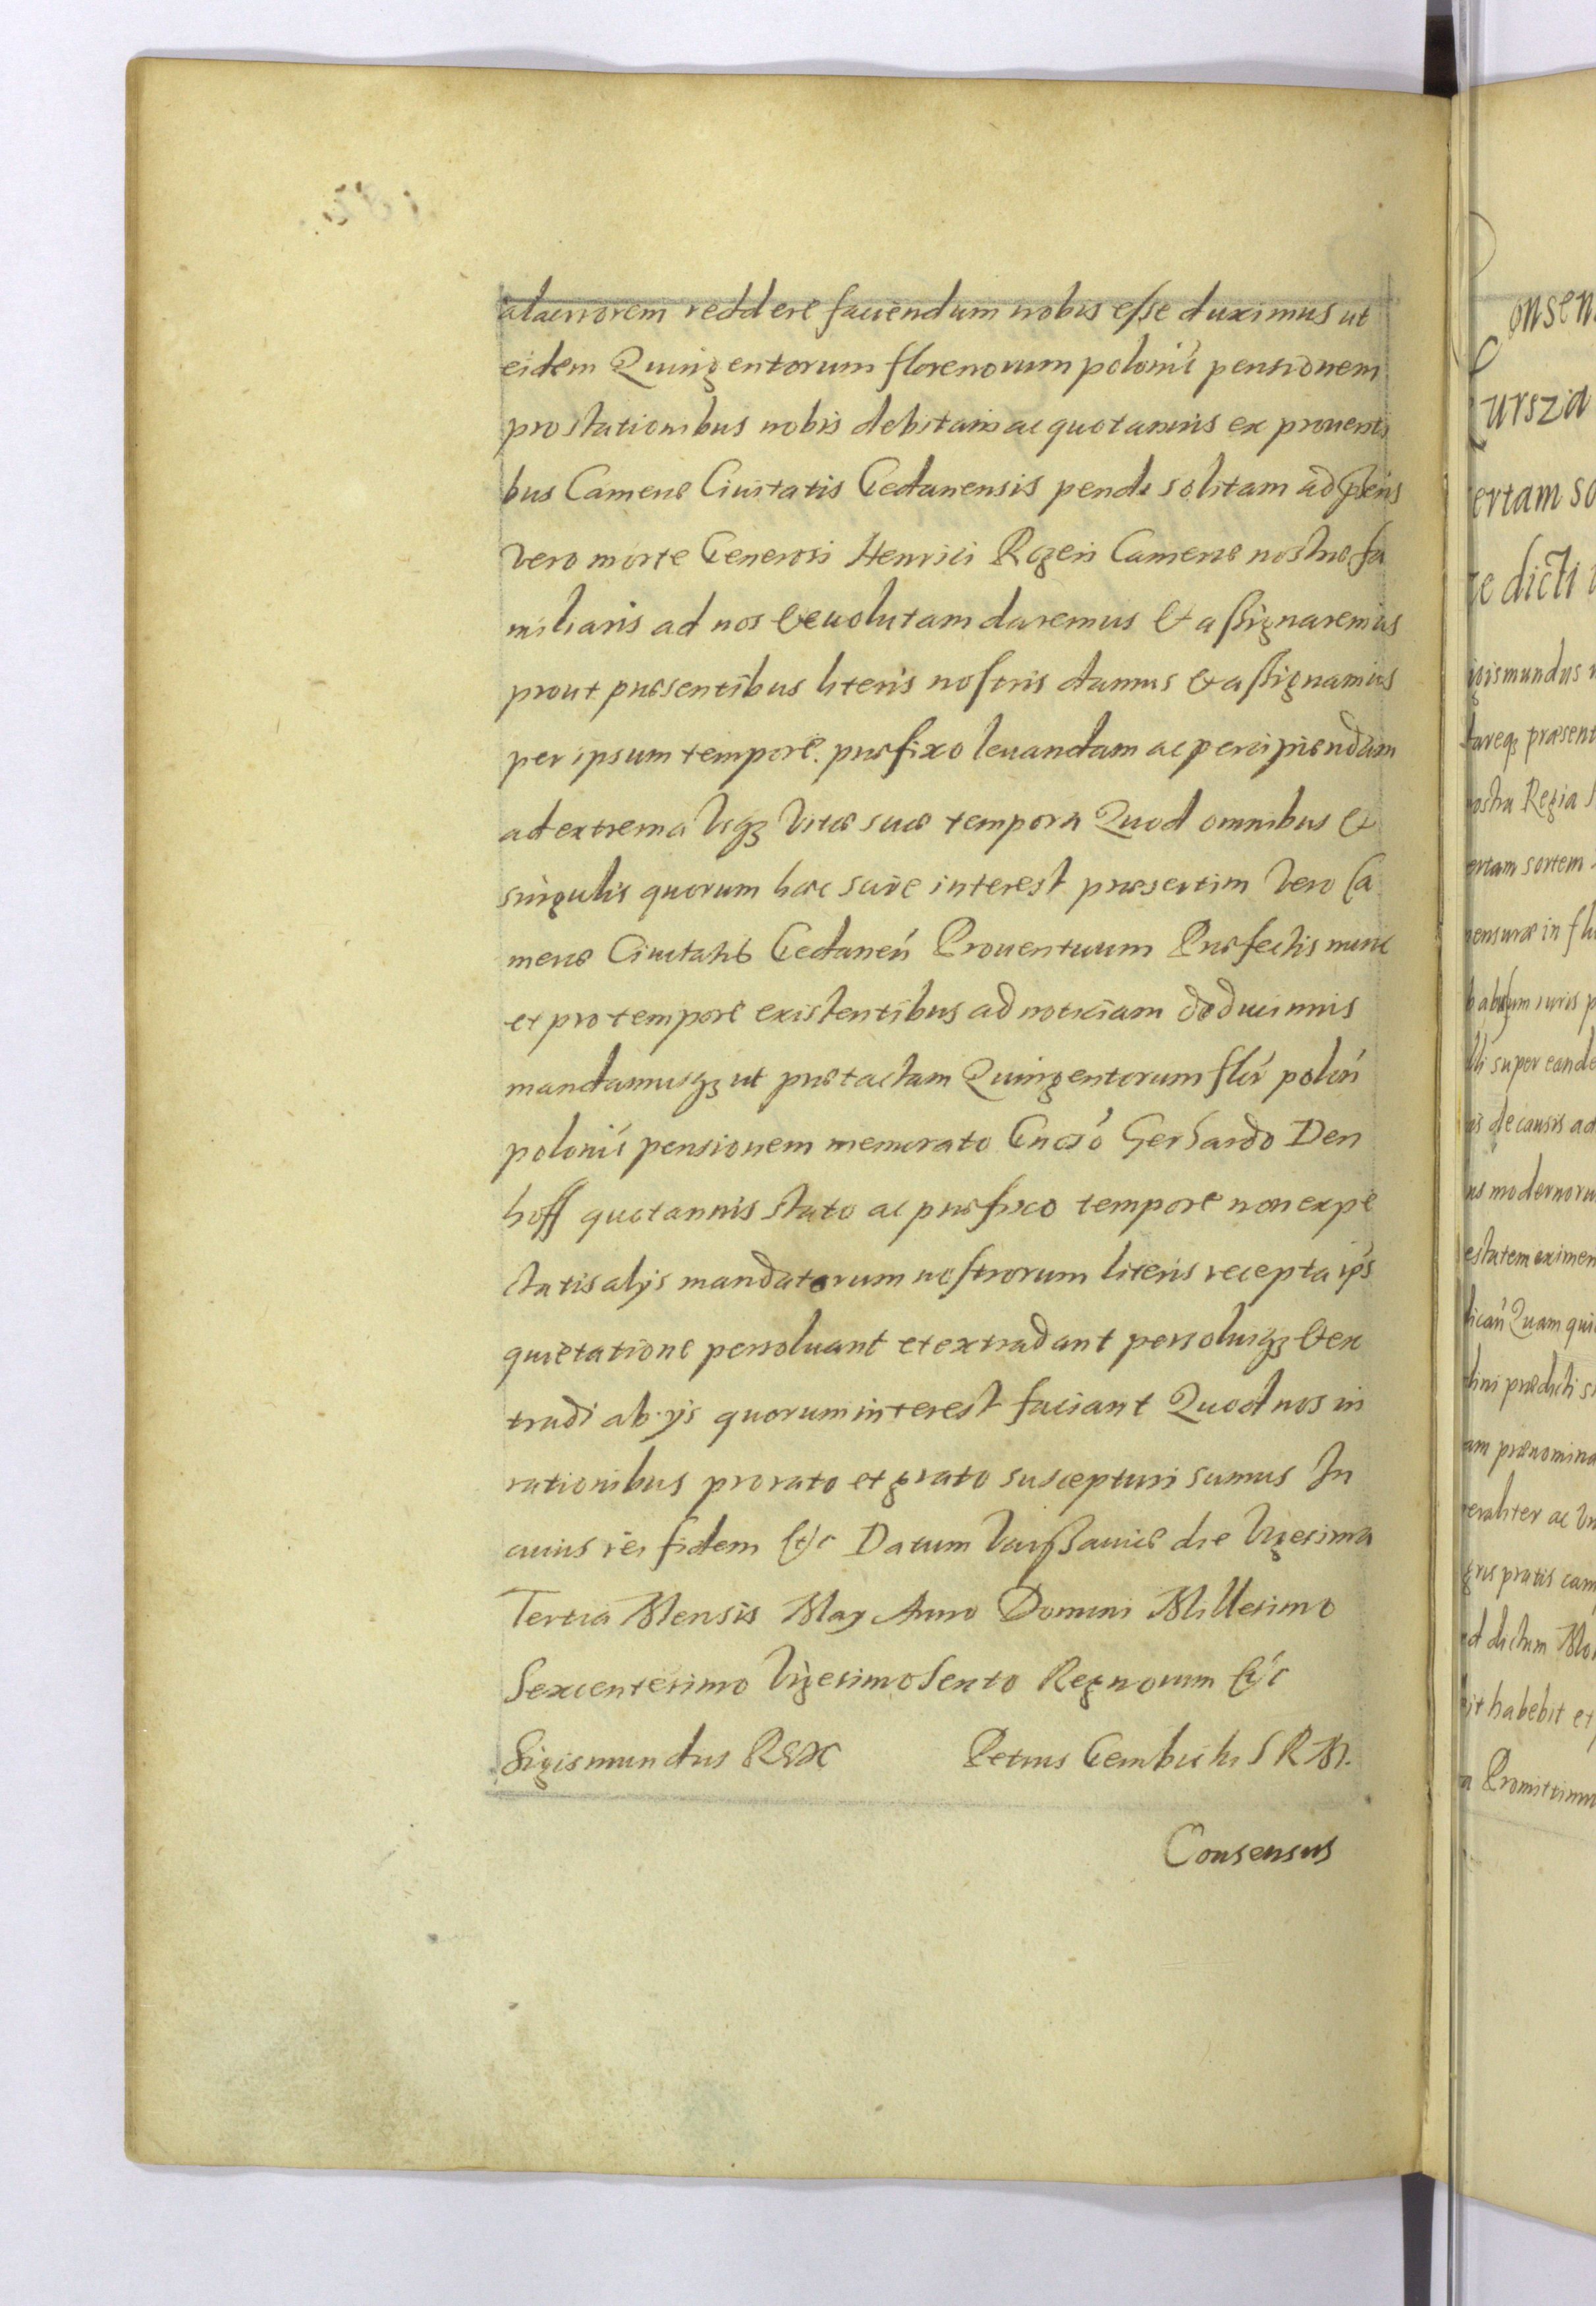 alacriorem reddere faciendum nobis esse duximus ut
eidem Quingentorum florenorum polonić pensionem
pro stationibus nobis debitam ac quotannis ex prouenti
bus Camerae Ciuitatis Gedanensis pendi solitam ad
vero morte Generosi Henrici Camerae nostrae fa
miliaris ad nos deuolutam daremus et assignaremus
prout praesentibus literis nostris damus et assignamus
per ipsum tempore praefixo leuandam ac percipiendam
ad extrema Vsqz Vitae suae tempora Quod omnibus et
singulis quorum hoc scire interest praesertim Vero Ca
merae Ciuitatis Gedaneń Prouentuum Praefectis nunc
et pro tempore existentibus ad noticiam deducimus
mandamusqz ut praetactam Quingentorum flor polon
polonić pensionem memorato Gnoso Gerhardo Den
hoff quotannis stato ac praefixo tempore non expe
ctatis alijs mandatorum nostrorum literis recepta ips
quietatione persoluant et extradant persoluiqz et ex
tradi ab ijs quorum interest faciant Quod nos in
rationibus pro rato et grato suscepturi sumus In
cuius rei fidem etc Datum Varssauiae die Vigesima
Tertia Mensis May Anno Domini Millesimo
Sexcentesimo Vigesimo Sexto Regnorum etc
Sigismundus Rex Petrus Gembicki S R M.
Consensus
onsen
urszia
ertam so
te dicti
igismundus
tareqz praesent
ostra Regia
ertam sortem
mensurae in
super eande
de causis ad
ns modernoru
Quam qui
praedicti
am praenomina
eraliter ac
gris pratis cam
dictum
it habebit et
Promittimu